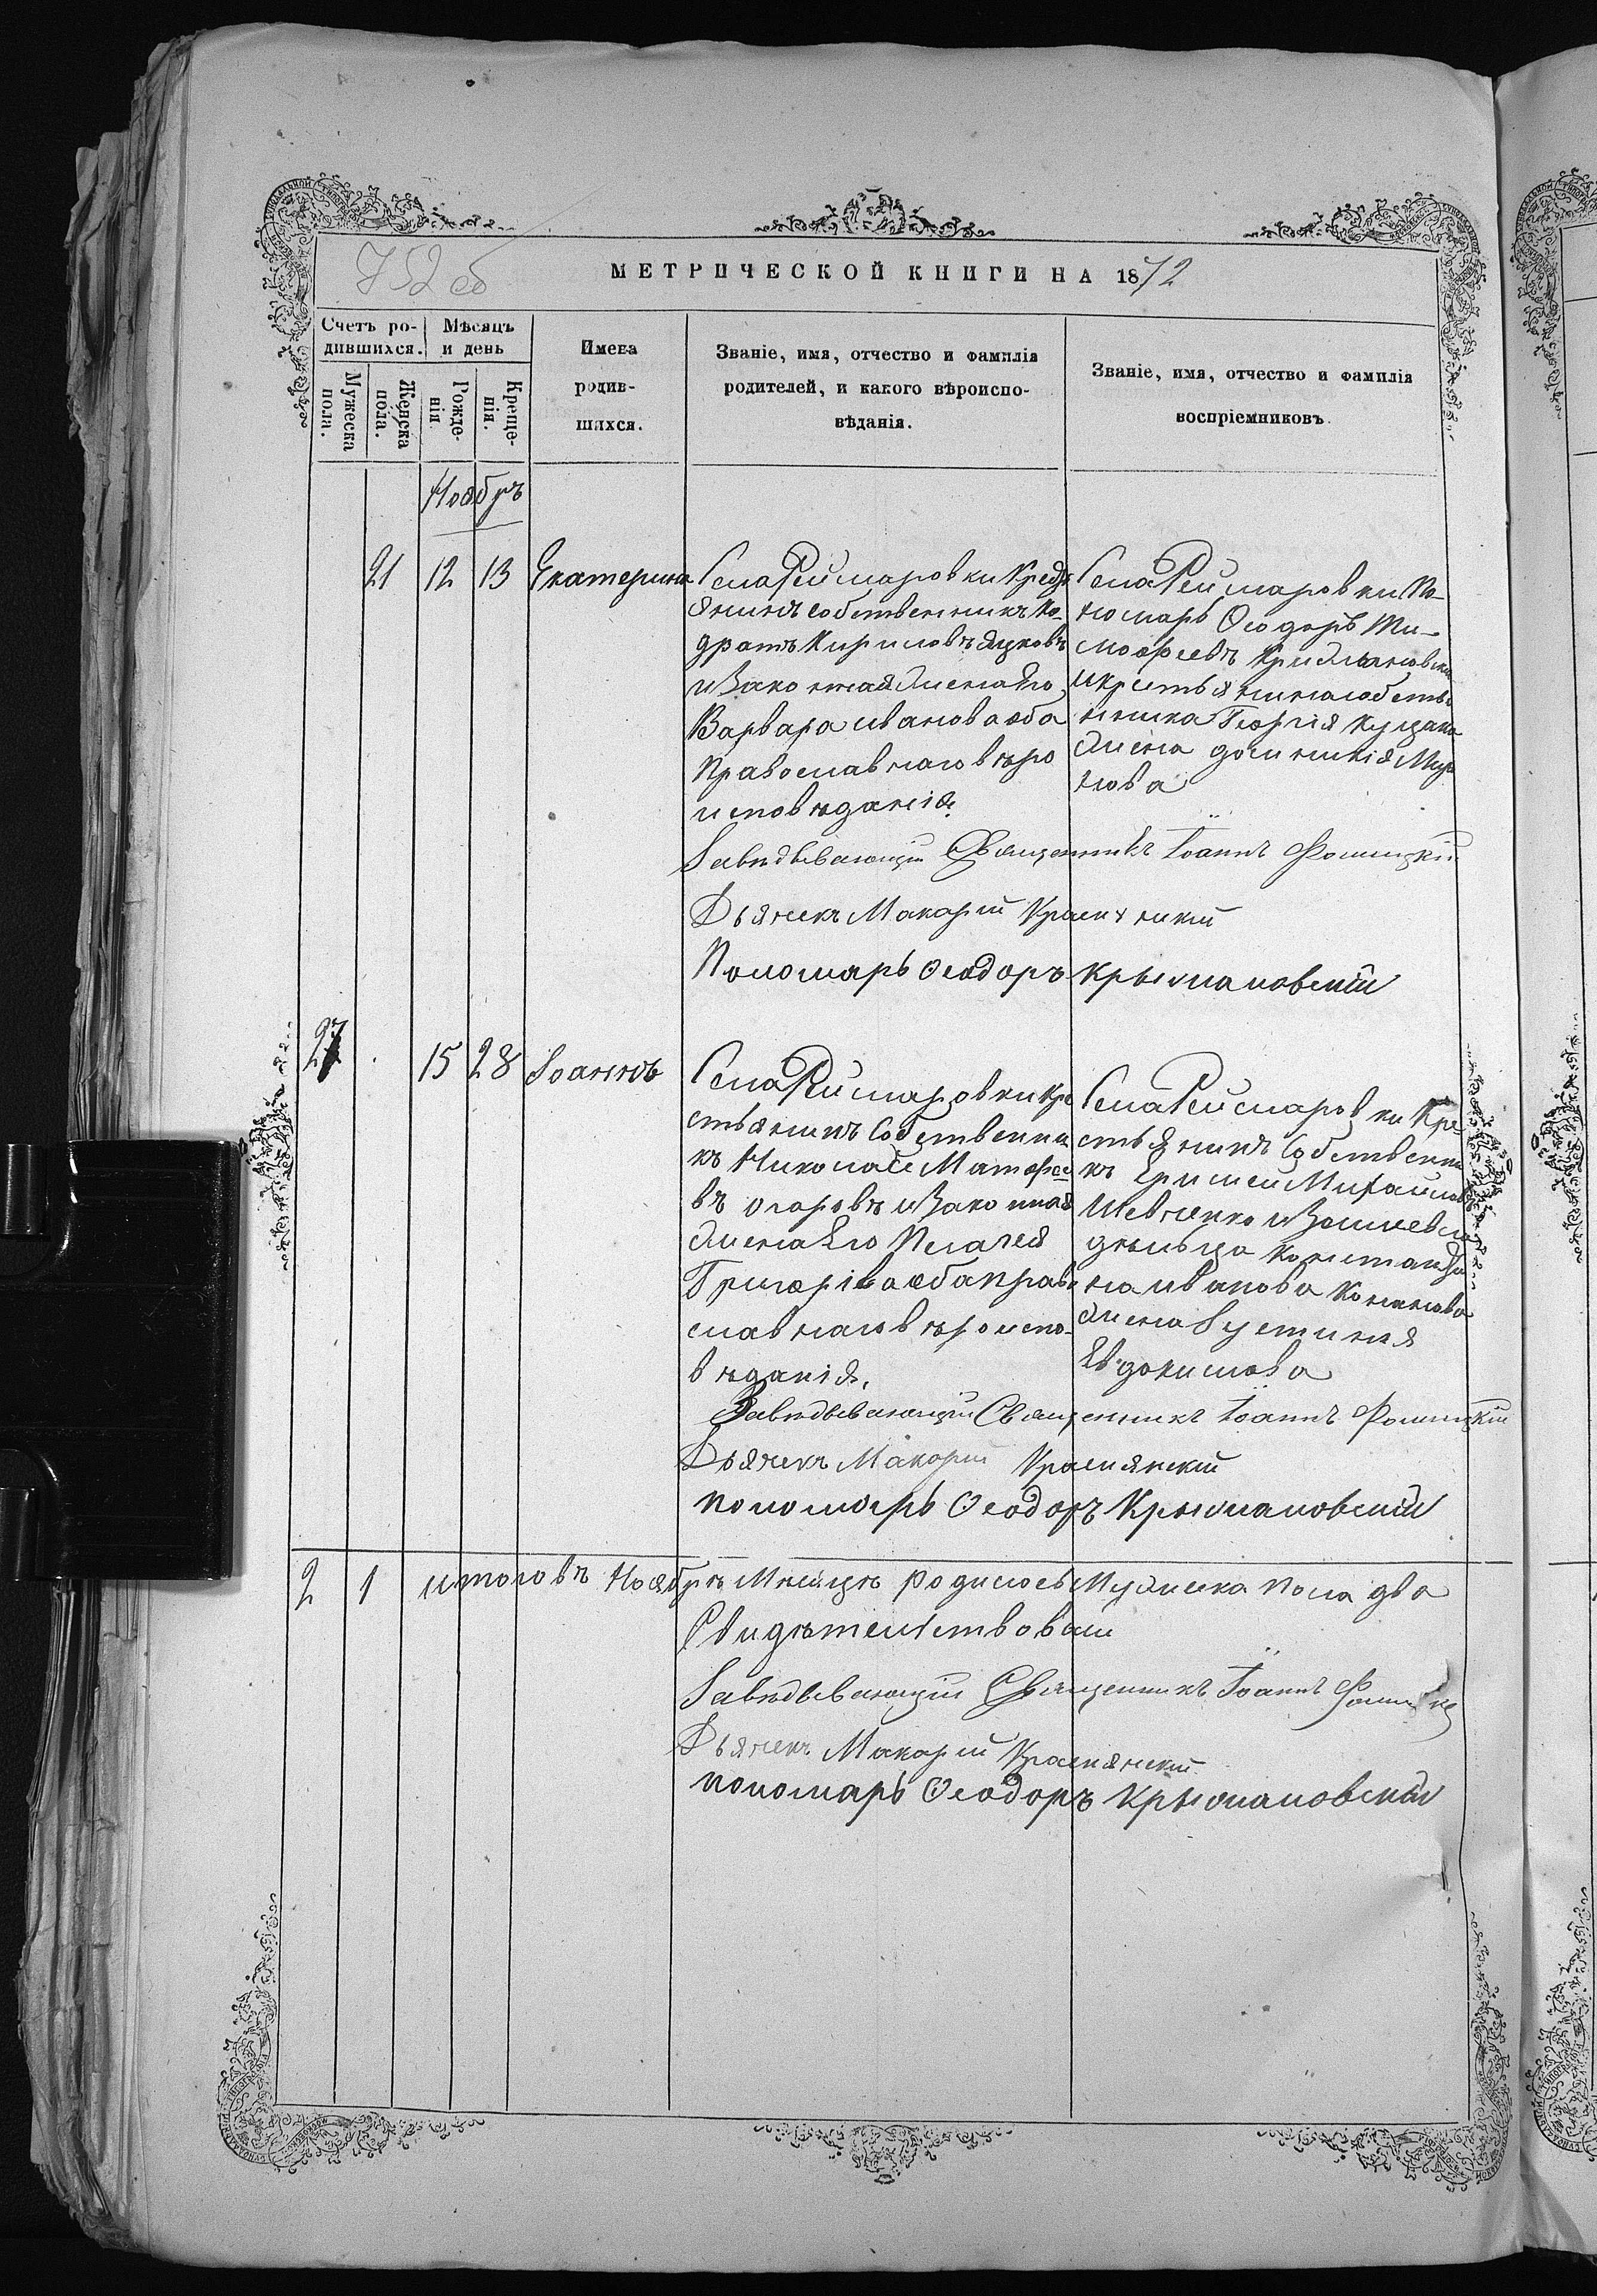 732 об
МЕТРИЧЕСКОЙ КНИГИ НА 1872
Счетъ родившихся.
Мужеска пола.
Женска пола.
Мѣсяцъ и день
Рожденія
Крещенія.
Имена родившихся.
Званіе, имя, отчество и фамилія
родителей, и какого вѣроиспо-
вѣданія.
Званіе, имя, отчество и фамилія
воспріемниковъ.
Ноябръ
21 12 13 Екатерина
Села Реймаровки
янинъ собственникъ Ко-
дратъ Кириловъ Яцковъ
и Законная Жена Его
Варвара Иванова оба
Православнаго вѣро
исповѣданія.
Села Реймаровки По-
номарь Ѳеодоръ Ти-
мофеевъ
и крестьянина собствен
ника Георгія
Жена Домникія
нова
Завѣдывающій Священникъ Іоаннъ
Дьячекъ Макарій Краснянский
Пономарь Ѳеодоръ Крыжановскій
27 15 28 Іоаннъ
Села Реймаровки Кре
стьянинъ Собственни
къ Николай Матфее
въ Огаровъ и Законная
Жена Его Пелагея
Григоріева оба право
славнаго вѣроиспо-
вѣданія.
Села Реймаровки Кре-
стьянинъ Собственни
къ Михаиловъ
Шевченко и
дѣльца Констанди
на Иванова
жена Іустинія
Евдокимова
Завѣдывающій Священникъ Іоаннъ
Дьячекъ Макарій Краснянскій
пономарь Ѳеодоръ Крыжановскій
2 1 итого въ Ноябрѣ Мѣсяцѣ родилось Мужеска пола два
Свидѣтельствовали
Завѣдывающій Священникъ Іоаннъ
Дьячекъ Макарій Краснянский
пономарь Ѳеодоръ Крыжановскій